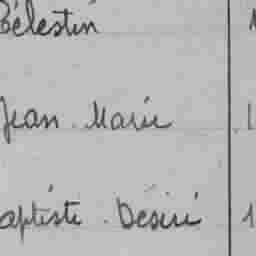 Célestin
Jean Marie
aptiste Désiré 1